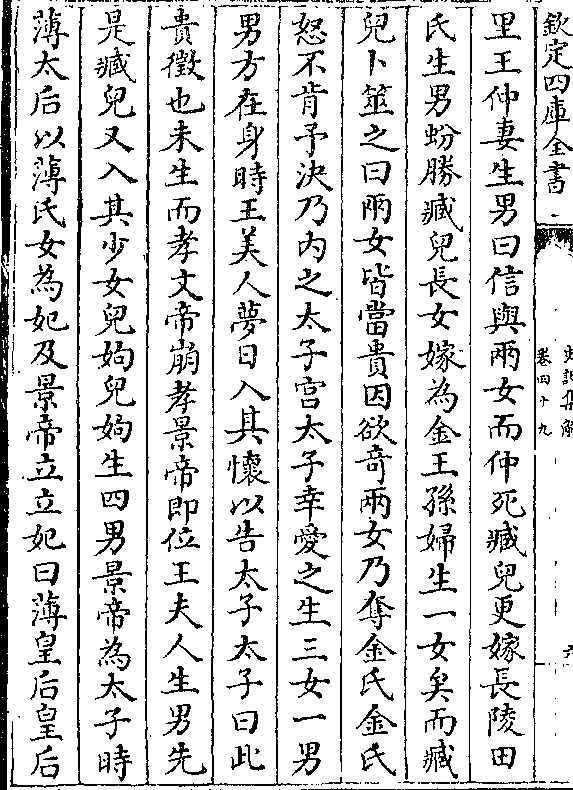 欽定四庫全書
史記集解
卷四十九
六
里王仲妻生男曰信與兩女而仲死臧兒更嫁長陵田
氏生男蚡勝臧兒長女嫁為金王孫婦生一女矣而臧
兒卜筮之曰兩女皆當貴因欲奇兩女乃奪金氏金氏
怒不肯予決乃内之太子宫太子幸愛之生三女一男
男方在身時王美人夢日入其懷以告太子太子曰此
貴徵也未生而孝文帝崩孝景帝即位王夫人生男先
是臧兒又入其少女兒姁兒姁生四男景帝為太子時
薄太后以薄氏女為妃及景帝立立妃曰薄皇后皇后